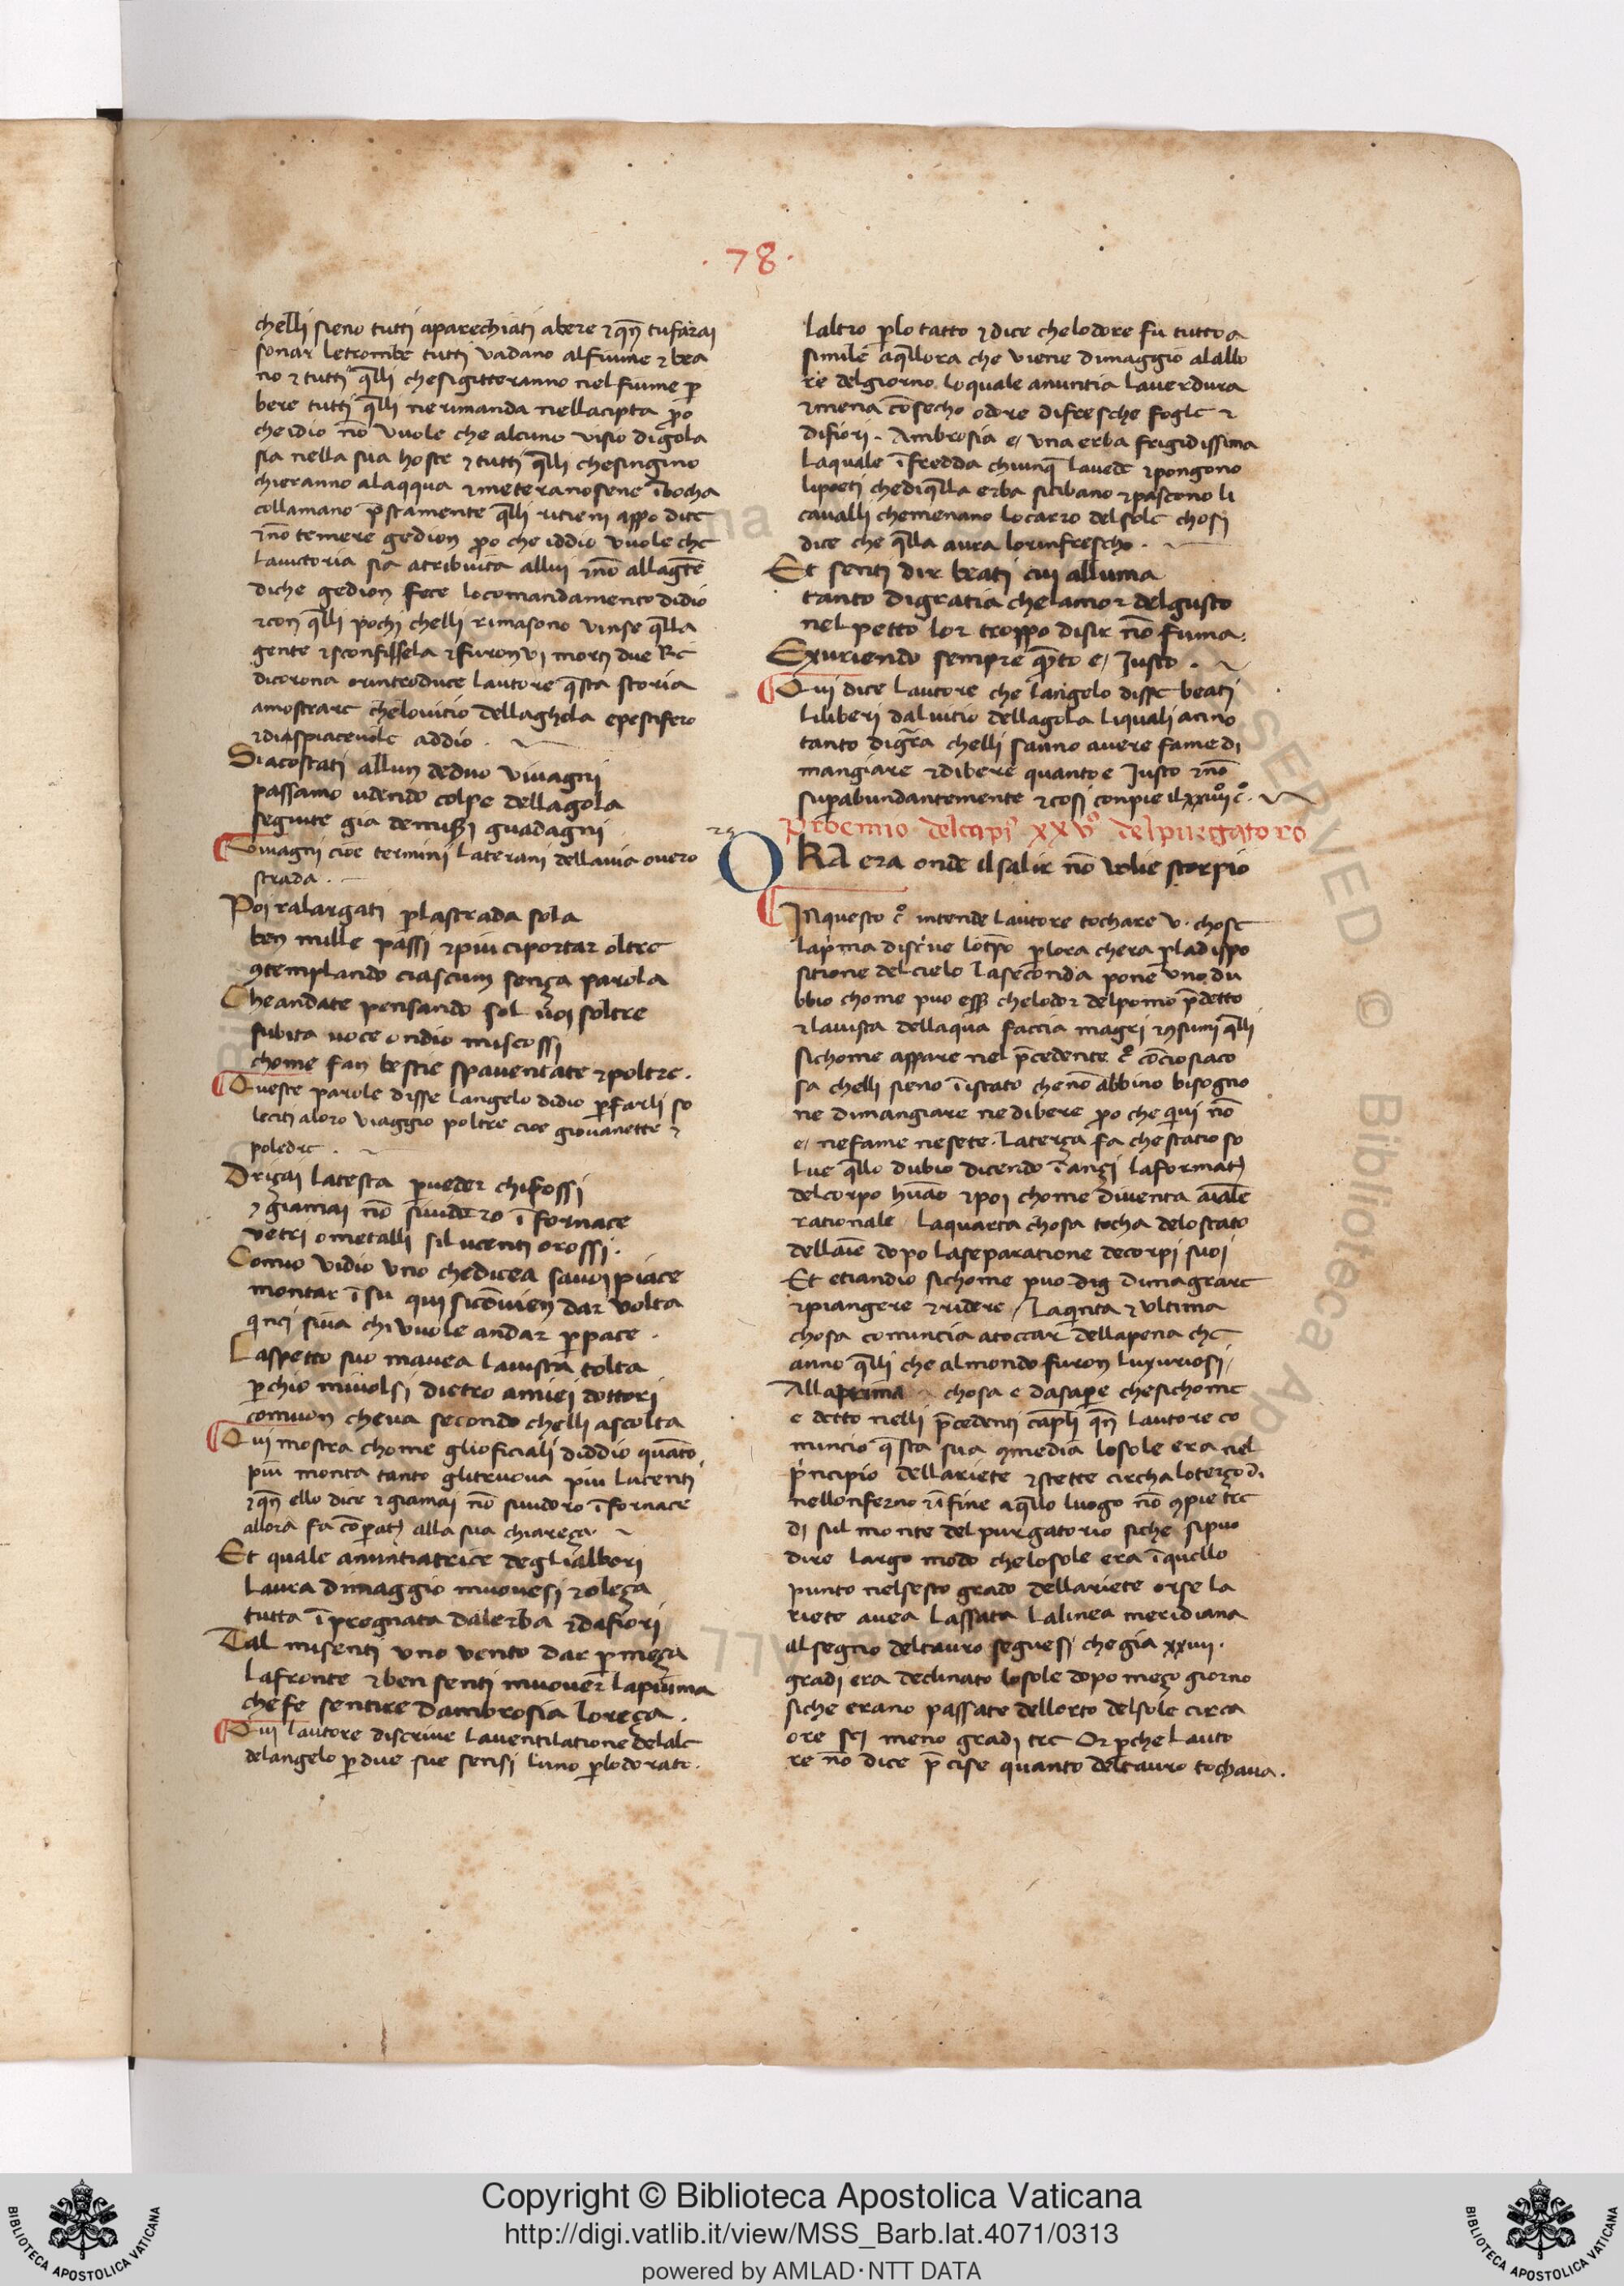 ·78·
chelli sieno tutti aparechiati abere ⁊ qn̄ tu farai
sonar letrombe tutti vadano alfiume ⁊ bea
no ⁊ tutti q̄lli chesigitteranno nel fiume p̲
bere tutti q̄lli ne rimanda nellacipta p̲o
che idio nō vuole che alcuno visio digola
sia nella sua hoste ⁊ tutti q̄lli chesingino
chieranno alaqqua ⁊ meteranosene ībocha
collamano p̄stamente q̄lli ritieni appo dite
⁊ nō temere gedion p̲o che iddio vuole che
lauictoria sia atribuita allui ⁊ nō allagēte
diche gedion fece locomandamento didio
⁊ con q̄lli pochi chelli rimasono vinse q̄lla
gente ⁊ sconfissela ⁊ furonvi morti due Re
dicorona orintroduce lautore q̄sta storia
amostrare chelouicio dellaghola epestifero
⁊ dispiacevole addio .
Siacostati allun deduo vivagni
passamo udendo colpe dellagola
seguite gia demiss̄i guadagni
Vivagni cioe termini laterani dellauia ouero
strada .
Poi ralargati p̲lastrada sola
ben mille passi ⁊ piu ciportar oltre
ꝯtemplando ciascun sença parola
Cheandate pensando sol uoi soltre
subita uoce ondio miscossi
chome fan bestie spaventate ⁊ poltre .
Queste parole disse langelo didio p̲farli so
leciti aloro viaggio poltre cioe giovanette ⁊
poledre .
Driçai latesta p̲ueder chifossi
⁊ giamai nō siuidero ī fornace
vetri ometalli silucenti orossi .
Comio vidio uno chedicea sauoi piace
montar īsu qui sicōvien dar volta
qinci siua chi vuole andar p̲pace .
Laspetto suo mauea lauista tolta
p̲chio mivolsi dietro amiei dottori
comuon cheua secondo chelli ascolta
Qui mostra chome glioficiali diddio quāto
piu monta tanto glitruova piu lucenti
⁊ qn̄ ello dice ⁊ giamai nō siuidoro īfornace
allora fa cōperat̄ alla sua chiareça
Et quale anuntiatrice deglialbori
laura dimaggio muovesi ⁊ oleça
tutta īpregnata dalerba ⁊ dafiori
Tal misenti uno vento dar p̲meça
lafronte ⁊ ben senti muover̄ lapiuma
chefe sentire dambrosia loreça .
Qui lautore discrive laventilatione delale
delangelo p̲due sue sensi luno p̲lodorato .
laltro p̲lo tatto ⁊ dice chelodore fu tutto a
simile aq̄llora che viene dimaggio alalbo
re delgiorno loquale anuntia laverdura
⁊ mena cōsecho odore difresche foglie ⁊
difiori . Ambrosia e/ una erba frigidissima
laquale īfredda chiunq̄ lauede ⁊ pongono
lipoeti chediq̄lla erba sicibano ⁊ pascono li
cavalli chemenano locarro delsole chosi
dice che q̄lla aura lorinfrescho .
Et senti dir beati cui alluma
tanto digratia chelamor delgusto
nel petto lor troppo disir nō fuma .
Exuriendo sempre qn̄to e/ Iusto .
Qui dice lautore che langelo disse beati
liliberi dalvitio dellagola liquali anno
tanto digr̄a chelli sanno avere fame di
mangiare ⁊ dibere quanto e Iusto ⁊ nō
sup̲abundantemente ⁊ cosi conpie il xxiiiiº cº .
Proemio delcapiº xxvº delpurgatoro
ORA era onde il salir nō volie storpio
INquesto cº intende lautore tochare v . chose
lap̲ma discrive lotp̄o p̲lora chera p̲ladispo
sitione del cielo laseconda pone uno du
bbio chome puo ess̄e chelodor delpomo p̄detto
⁊ lauista dellaqua faccia magri ⁊ ꝯsumi q̄lli
sichome appare nel p̄cedente cº cōciosiaco
sa chelli sieno īistato che nō abbino bisogno
ne dimangiare nedibere p̲o che qui nō
e/ nefame nesete . laterça fa che statio so
lve q̄llo dubio dicendo īançi laformat̄
delcorpo hūāo ⁊ poi chome diventa aīale
rationale laquarta chosa tocha delostato
dellaīe dopo laseparatione decorpi suoi
Et etiandio sichome puo dig dimagrare
⁊ piangere ⁊ ridere / laqinta ⁊ ultima
chosa comincia atoccar̄ dellapena che
anno q̄lli che almondo furon luxuriosi /
Allaprima chosa e dasap̲e chesichome
e detto nelli p̄cedenti cap̄li qn̄ lautore co
mincio q̄sta sua ꝯmedia losole era nel
p̲ncipio dellariete ⁊ stette circha loterço d.
nelloinferno ⁊ īfine aq̄llo luogo nō ꝯpie tre
di sul monte del purgatorio siche sipuo
dire largo modo chelosole era īquello
punto nelsesto grado dellariete orse la
riete avea lassata lalinea meridiana
al segno deltauro seguesi chegia xxiiii .
gradi era declinato losole dopo meço giorno
siche erano passate dellorto delsole circa
ore sei meno gradi tre Or p̲che lauto
re nō dice p̄cise quanto deltauro tochava .
Copyright © Biblioteca Apostolica Vaticana
http://digi.vatlib.it/view/MSS_Barb.lat.4071/0313
powered by AMLAD·NTT DATA
BIBLIOTECA APOSTOLICA VATICANA
BIBLIOTECA APOSTOLICA VATICANA